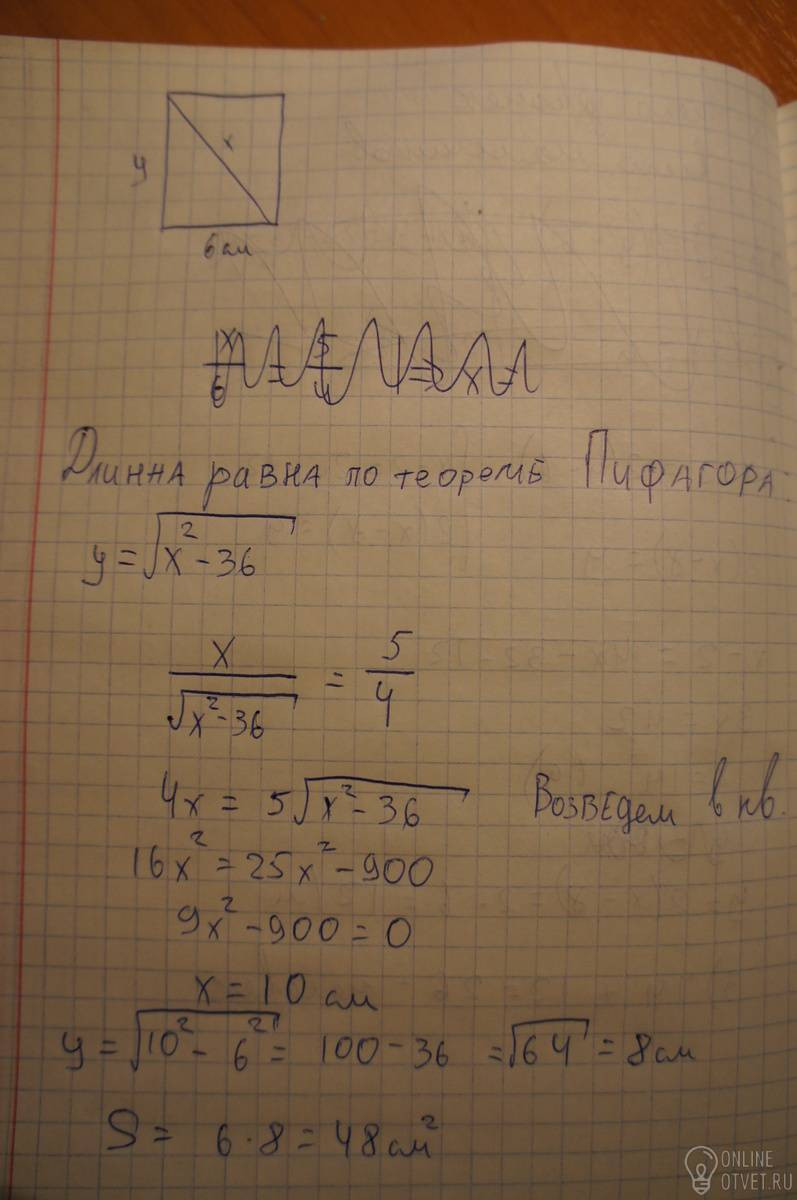 x
y
6 см
Длинна равна по теореме Пифагора
y = √(x² - 36)
x / √(x² - 36) = 5 / 4
4x = 5√(x² - 36) Возведем в кв.
16x² = 25x² - 900
9x² - 900 = 0
x = 10 см
y = √(10² - 6²) = 100 - 36 = √64 = 8 см
S = 6 · 8 = 48 см²
ONLINE
OTVET.RU